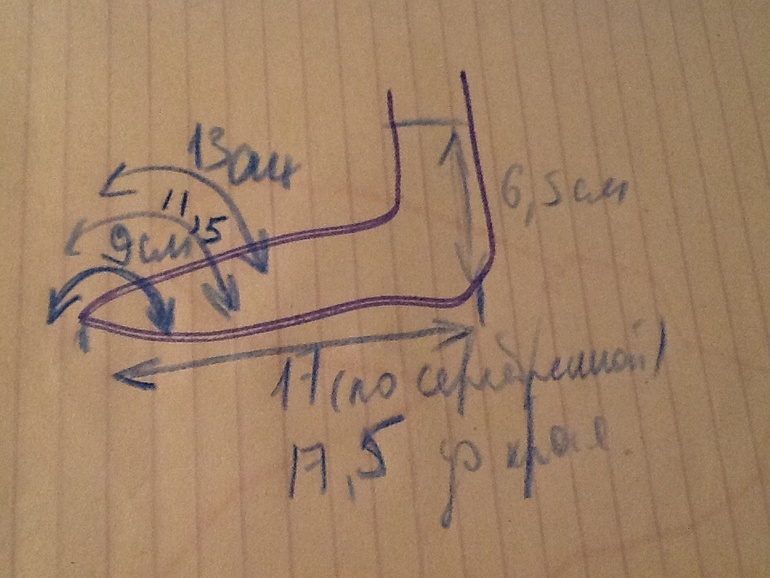 13см
11,5
9см
6,5см
17 (по серебрянной)
17,5 до края.